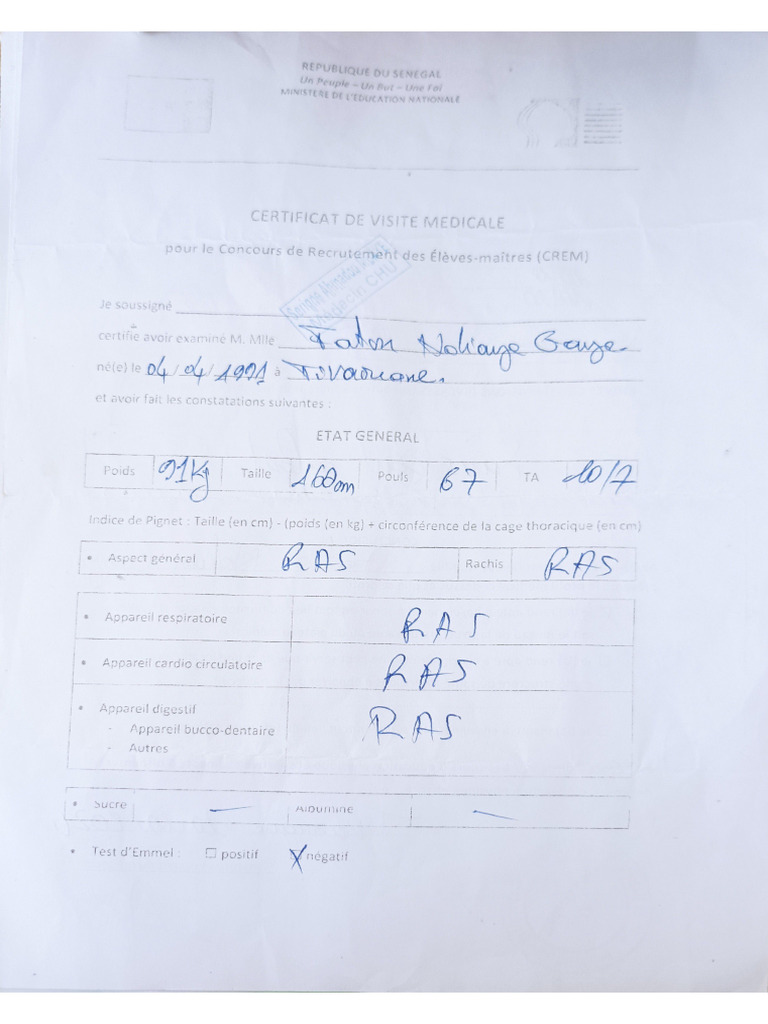 REPUBLIQUE DU SENEGAL
Un Peuple – Un But – Une Foi
MINISTERE DE L'EDUCATION NATIONALE
CERTIFICAT DE VISITE MEDICALE
pour le Concours de Recrutement des Élèves-maîtres (CREM)
Médecin CHU
Je soussigné
certifie avoir examiné M. Mlle Fatou Ndiaye Gueye.
né(e) le 04/04/1991 à Tivaouane.
et avoir fait les constatations suivantes :
ETAT GENERAL
Poids 91Kg Taille 160cm Pouls 67 TA 10/7
Indice de Pignet : Taille (en cm) - (poids (en kg) + circonférence de la cage thoracique (en cm)
• Aspect général RAS Rachis RAS
• Appareil respiratoire RAS
• Appareil cardio circulatoire RAS
• Appareil digestif RAS
- Appareil bucco-dentaire
- Autres
• Sucre — Albumine —
• Test d'Emmel : ☐ positif ☒ négatif